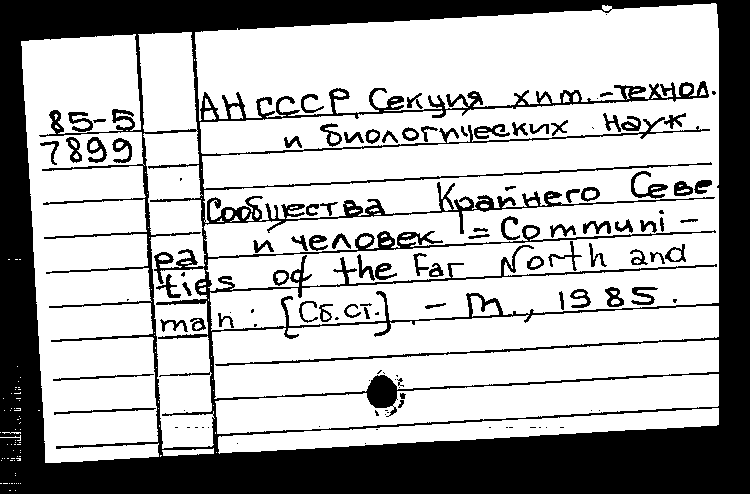 85-5
7899
АН СССР. Секция хим.-технол.
и биологических наук.
Сообщества Крайнего Севе
ра и человек = Communi-
ties of the Far North and
man: [Сб.ст.]. - М., 1985.